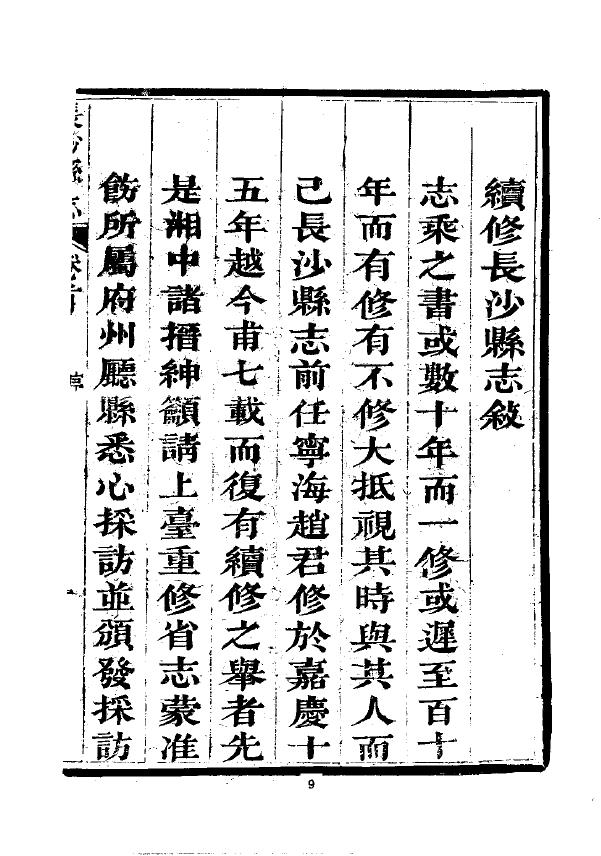 續修長沙縣志敘
志乘之書或數十年而一修或遲至百十
年而有修有不修大抵視其時與其人而
已長沙縣志前任寧海趙君修於嘉慶十
五年越今甫七載而復有續修之舉者先
是湘中諸搢紳籲請上臺重修省志蒙准
飭所屬府州廳縣悉心採訪並頒發採訪
長沙縣志
9